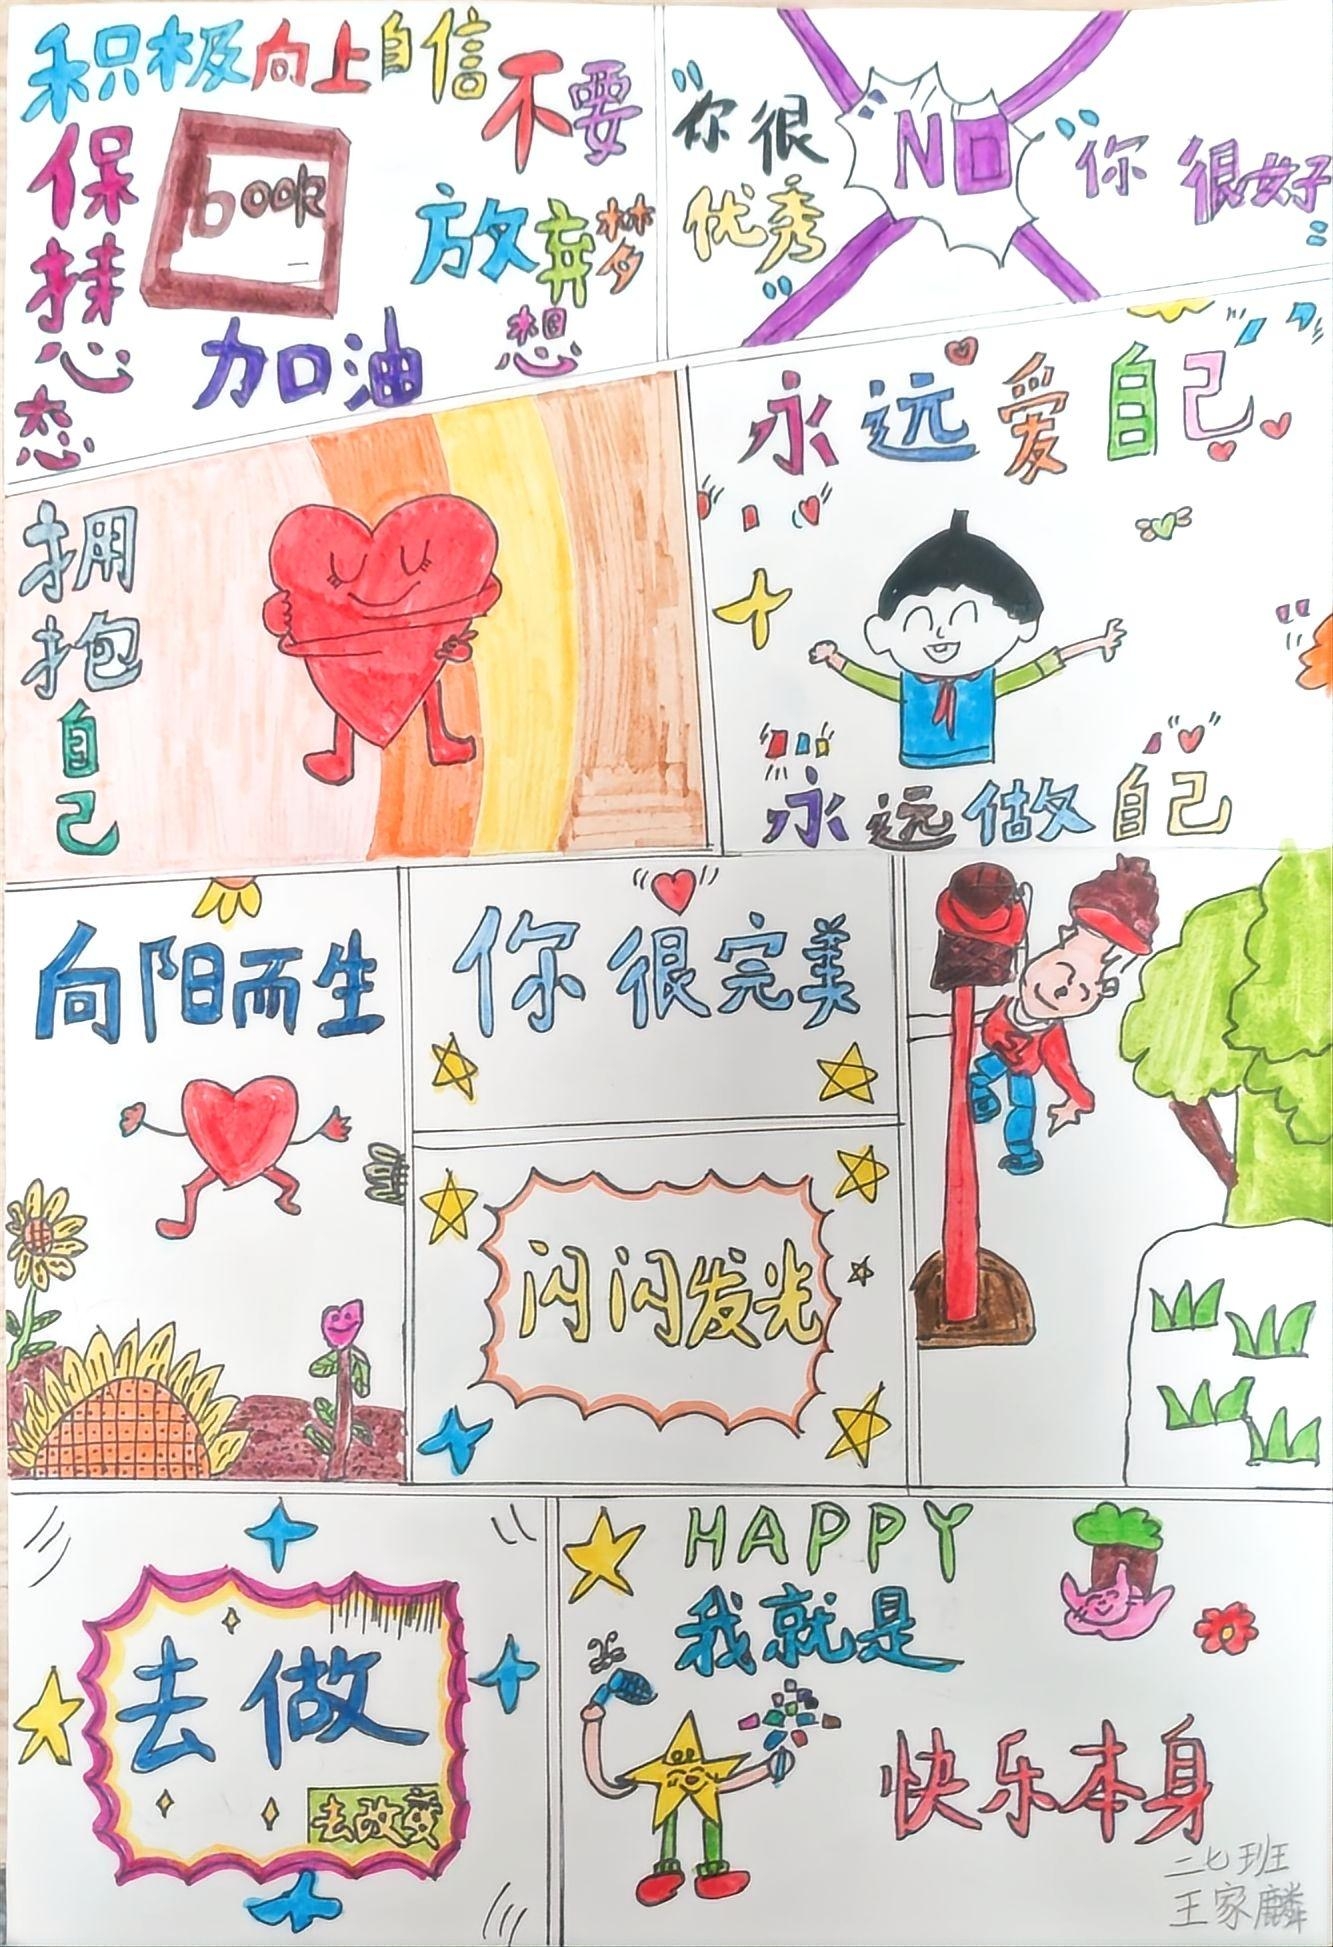 积极向上自信
不要
放弃梦
想
保持
心态
book
加油
“你很
优秀”
NO
“你很好”
永远爱自己
永远做自己
拥抱自己
向阳而生
你很完美
闪闪发光
去做
去改变
HAPPY
我就是
快乐本身
二七班
王家麟